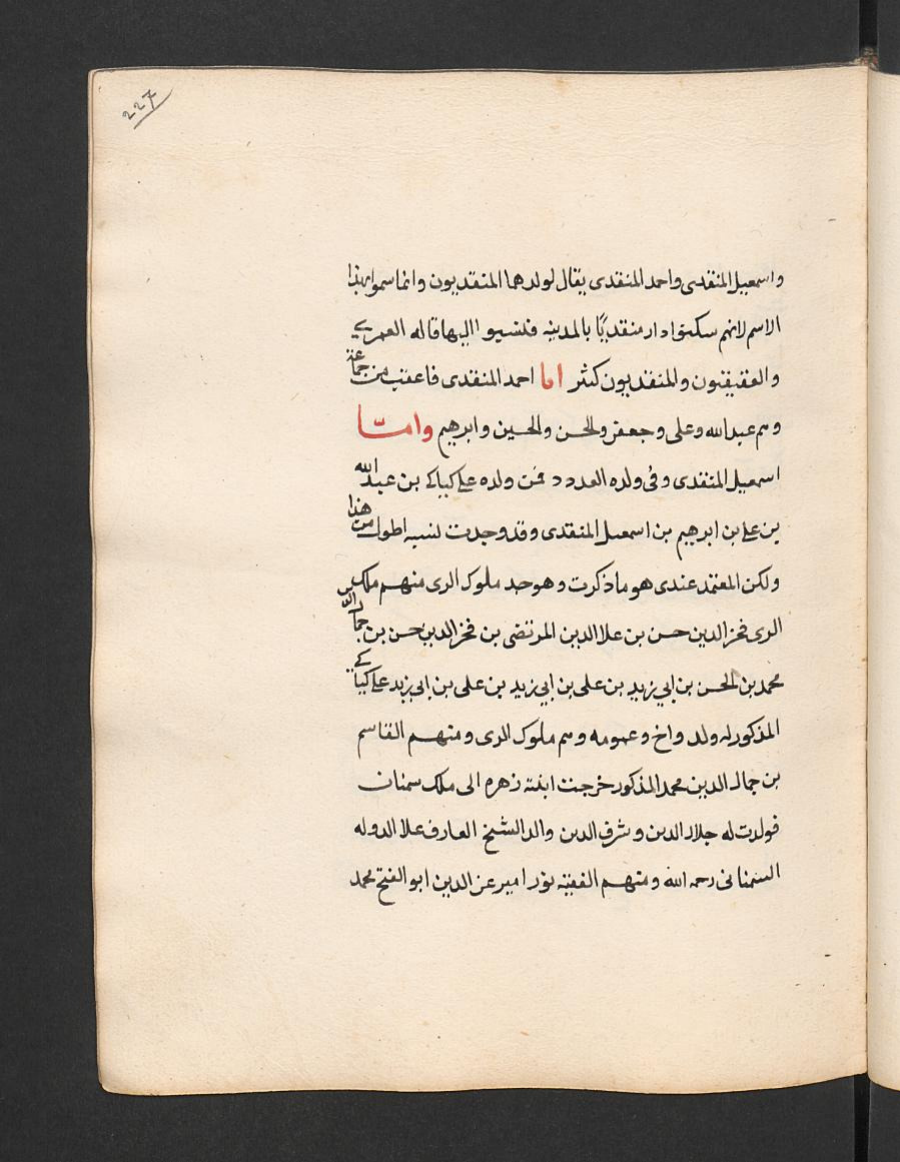 227
واسمعيل المنقدى واحمد المنقدى يقال لولدهما المنقديون وانما سموا بهذا
الاسم لانهم سكنوا دار منقديًا بالمدينه فنسبوا اليها قاله العمرى
والعقيقيون والمنقديون كثر اما احمد المنقدى فاعقب من جماعة
وهم عبدالله وعلى وجعفر والحسن والحسين وابرهيم وامّا
اسمعيل المنقدى وفى ولده العدد فمن ولده على كياكى بن عبد الله
بن على بن ابرهيم بن اسمعيل المنقدى وقد وجدت نسبه اطول من هذا
ولكن المعتمد عندى هو ما ذكرت وهو جد ملوك الرى منهم ملك
الرى فخر الدين حسن بن علا الدين المرتضى بن فخر الدين حسن بن جمال الدين
محمد بن الحسن بن ابي زيد بن على بن ابي زيد بن على بن ابى زيد على كياكى
المذكور له ولد واخ وعمومه وهم ملوك الرى ومنهم القاسم
بن جمال الدين محمد المذكور خرجت ابنته زهره الى ملك سمنان
فولدت له جلال الدين وشرف الدين والد الشيخ العارف علا الدوله
السمنانى رحمه الله ومنهم الفقيه نور امير عز الدين ابو الفتح محمد